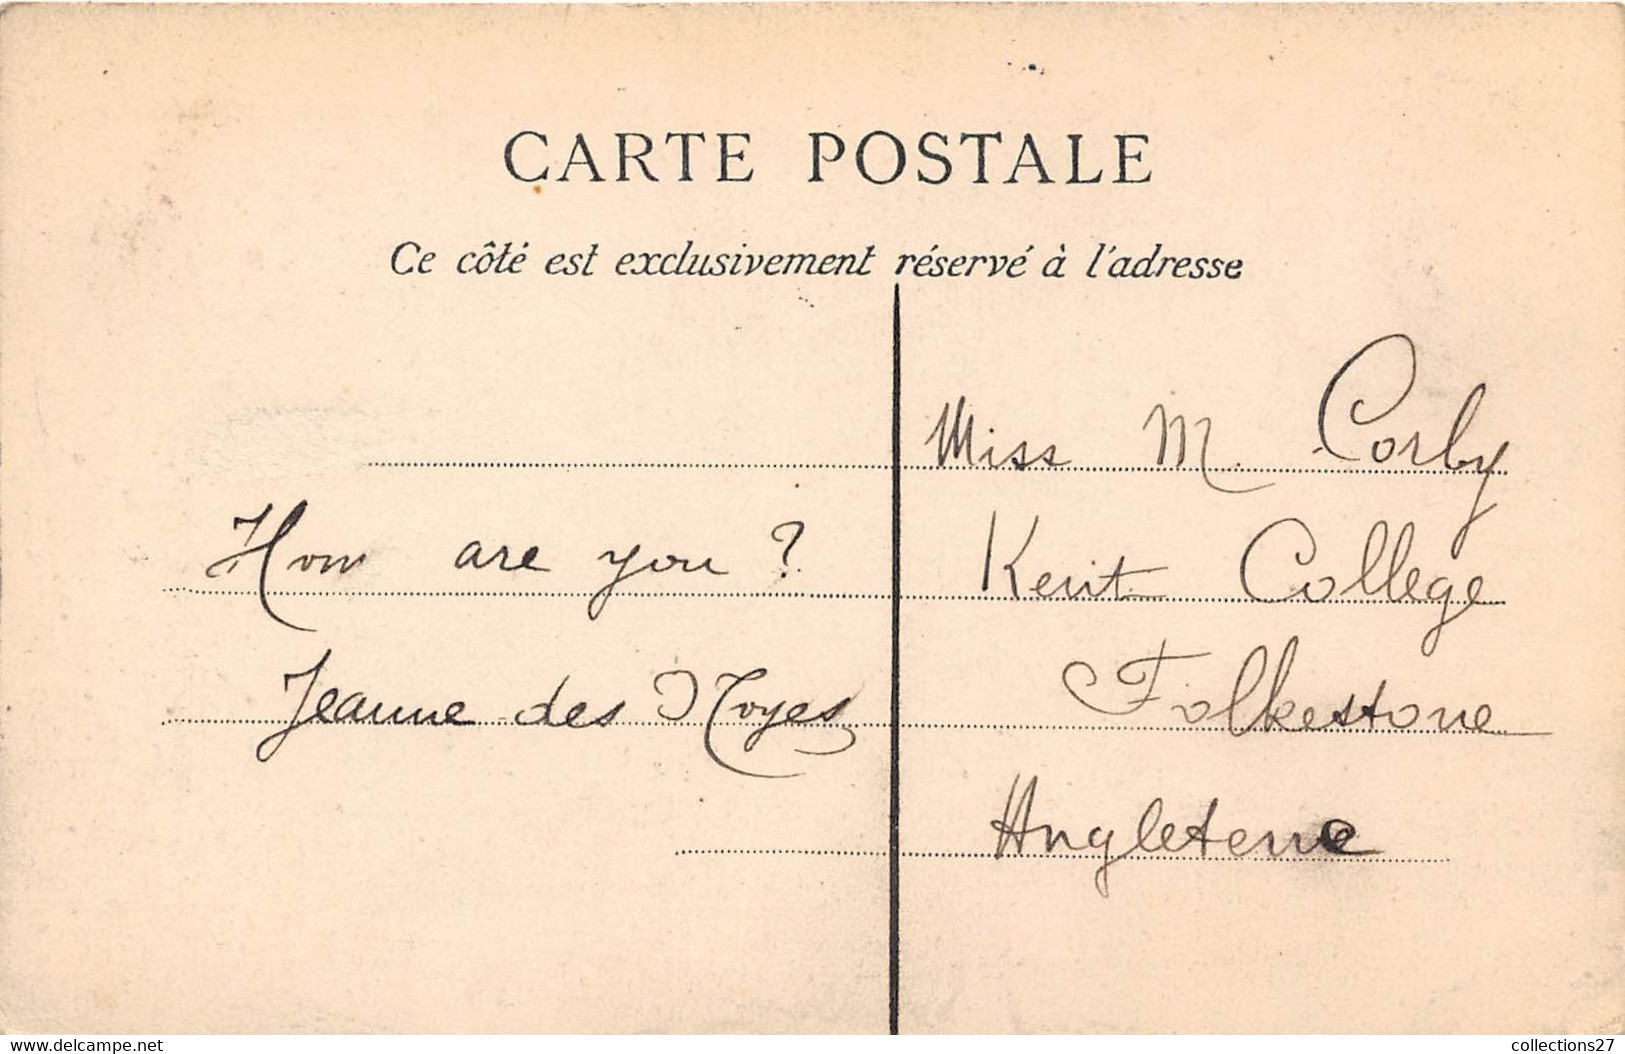 CARTE POSTALE
Ce côté est exclusivement réservé à l'adresse
How are you ?
Jeanne des Noyes
Miss M. Corby
Kent College
Folkestone
Angleterre
www.delcampe.net
collections27